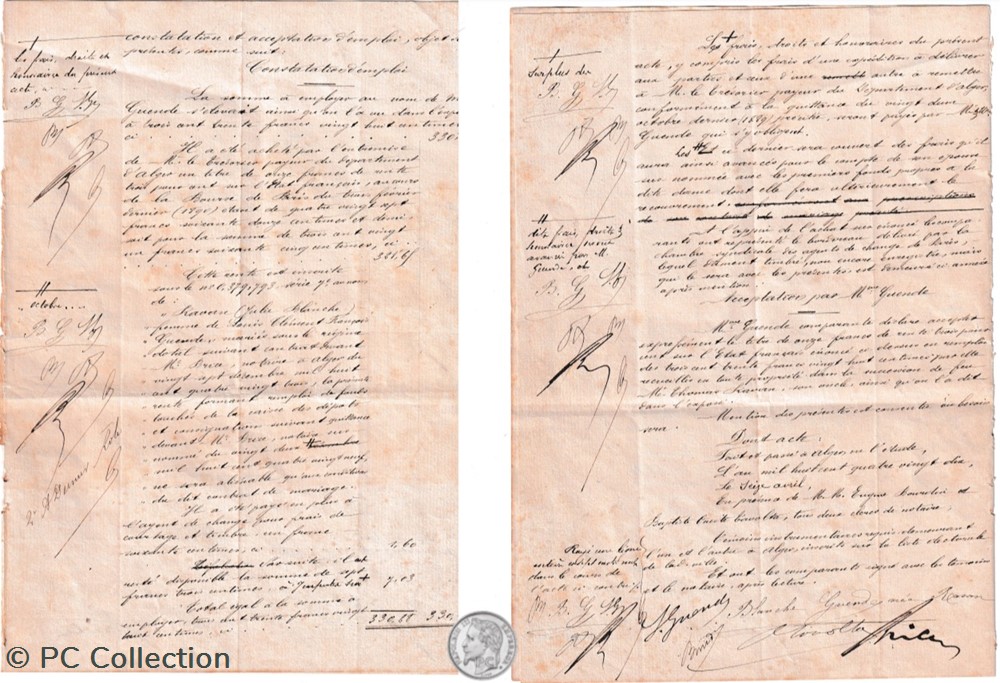 constatation et acceptation d'emploi, objet d
présentes, comme suit:
Constatation d'emploi
La somme à employer au nom de M
Guende s'élevait ainsi qu'on l'a vu dans l'exp
à trois cent trente francs vingt huit centimes
ci 330
Il a été acheté par l'entremise
de M. le trésorier payeur du département
d'Alger un titre de onze francs de rente
trois pour cent sur l'Etat français, au cours
de la Bourse de Paris du trois février
dernier (1890) étant de quatre vingt sept
francs soixante douze centimes et demi
soit pour la somme de trois cent vingt
un francs soixante cinq centimes, ci
321,65
Cette rente est inscrite
sous le n° 0.379.793 série 7e au nom
de:
Ravan (Julie Blanche)
femme de Louis Clément François
Guende, mariée sous le régime
dotal suivant contrat devant
Me notaire à Alger du
vingt sept décembre mil huit
cent quatre vingt trois, la présente
rente formant remploi de fonds
touchés de la caisse des dépôts
et consignations suivant quittance
devant Me notaire sus
nommé du vingt deux
mil huit cent quatre vingt neuf,
ne sera aliénable qu'aux conditions
du dit contrat de mariage.
Il a été payé en plus à
l'agent de change pour frais de
courtage et timbre un franc
soixante centimes, ci 1,60
il
resté disponible la somme de sept
francs trois centimes, ci 7,03
Total égal à la somme à
employer, trois cent trente francs vingt
huit centimes, ci 330,28 330
les frais, droits et
honoraires du présent
acte
B. G.
octobre
B. G.
Les frais, droits et honoraires du présent
acte, y compris les frais d'une expédition à délivrer
aux parties et ceux d'une autre à remettre
à M. le trésorier payeur du département d'Alger,
conformément à la quittance du vingt deux
octobre dernier (1889) précitée, seront payés par M.
Guende qui s'y obligent.
ce dernier sera couvert des frais qu'il
aura ainsi avancés pour le compte de son épouse
sus nommée avec les premiers fonds propres à la
dite dame dont elle fera ultérieurement le
recouvrement
A l'appui de l'achat sus énoncé les compa
rants ont représenté le bordereau délivré par la
chambre syndicale des agents de change de Paris,
lequel dûment timbré, non encore enregistré, mais
qui le sera avec les présentes, est demeuré ci annexé
après mention.
Acceptation par Mme Guende
Mme Guende comparante déclare accepter
expressément le titre de onze francs de rente trois pour
cent sur l'Etat français énoncé ci dessus en remploi
des trois cent trente francs vingt huit centimes par elle
recueillis en toute propriété dans la succession de feu
M. Thomas Ravan, son oncle, ainsi qu'on l'a dit
dans l'exposé.
Mention des présentes est consentie où besoin
sera.
Dont acte:
Fait et passé à Alger en l'étude,
L'an mil huit cent quatre vingt dix,
Le Seize avril,
En présence de M. M. Eugène et
Baptiste tous deux clercs de notaire,
Témoins instrumentaires requis demeurant
l'un et l'autre à Alger, inscrits sur la liste électorale
de la dite ville.
Et ont les comparants signé avec les témoins
et le notaire, après lecture.
surplus des
B. G.
dits frais, droits &
honoraires
avancés par M.
Guende, et
B. G.
Rayé une ligne
entière
dans le corps de
l'acte
Guende Blanche Guende née Ravan
© PC Collection